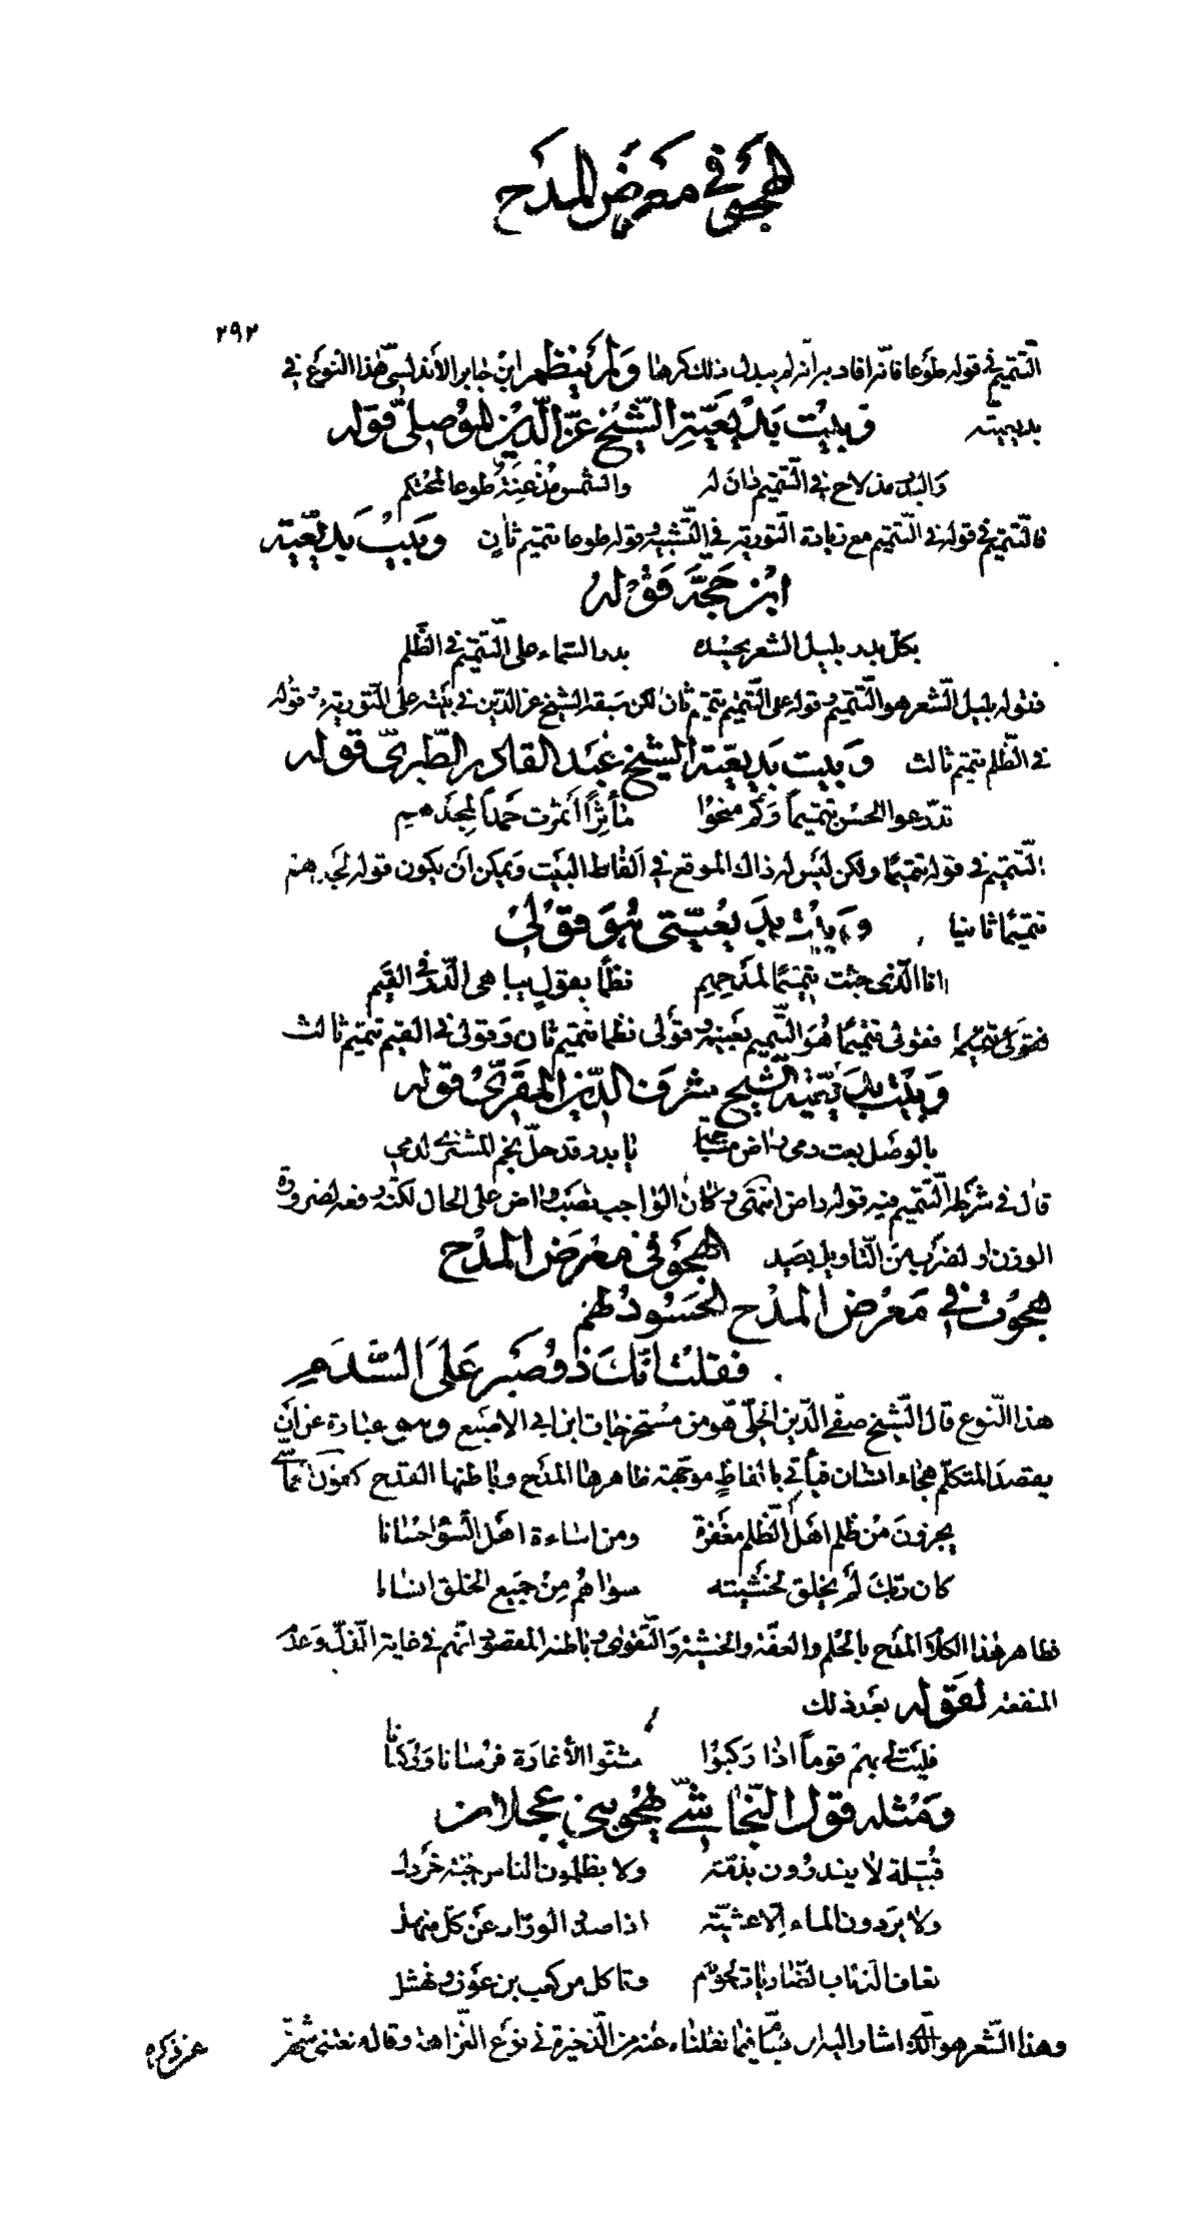 الهجو في معرض المدح
٢٩٢
التّتميم في قوله طوعا فانّه افاد به انّه لم يبدل ذلك كرها ولم ينظم ابن جابر الأندلسيّ هذا النّوع في
بديعيّته وبيت بديعيّة الشّيخ عزّ الدّين الموصليّ قوله
والبدر مذ لاح في التّتميم دان له والشّمس مذعنة طوعا لمحتكم
فالتّتميم في قوله في التّتميم مع زيادة التّورية في التّشبيه وقوله طوعا تتميم ثان وبيت بديعيّة
ابن حجّة قوله
بكلّ بدر بليل الشّعر يحسده بدر السّماء على التّتميم في الظّلم
فقوله بليل الشّعر هو التّتميم وقوله على التّتميم تتميم ثان لكن سبقه الشّيخ عزّ الدّين في بيته على التّورية وقوله
في الظّلم تتميم ثالث وبيت بديعيّة الشّيخ عبد القادر الطّبريّ قوله
تدرّعوا الحسن تتميماً وكم منحوا مآثراً أثمرت حمداً لمجدهم
التّتميم في قوله تتميما ولكن ليس له ذاك الموقع في الفاظ البيت ويمكن ان يكون قوله لمجدهم
تتميما ثانيا وبيت بديعيّتي هو قولي
انا الّذي جئت تتميما لمدحهم نظما بقول يباهي الدّرّ في القيم
فقولي تتميما هو التّتميم بعينه وقولي نظما تتميم ثان وقولي في القيم تتميم ثالث
وبيت بديعيّة الشّيخ شرف الدّين المقريّ قوله
بالوصل بعت دمي راض يا بدر قد حلّ نجم المشتري لدمي
قال في شرحه التّتميم فيه قوله راض انتهى وكان الواجب نصب راض على الحال لكنّه رفعه لضرورة
الوزن او لضرب من التّأويل بعيد الهجو في معرض المدح
هجوت في معرض المدح الحسود لهم
فقلت انّك ذو صبر على السّدم
هذا النّوع قال الشّيخ صفيّ الدّين الحلّيّ هو من مستخرجات ابن ابي الاصبع وهو عبارة عن ان
يقصد المتكلّم هجاء انسان فيأتي بالفاظ موجّهة ظاهرها المدح وباطنها القدح كقول الحماسيّ
يجزون من ظلم اهل الظّلم مغفرة ومن اساءة اهل السّوء احسانا
كان ربّك لم يخلق لخشيته سواهم من جميع الخلق انسانا
فظاهر هذا الكلام المدح بالحلم والعفّة والخشية والتّقوى وباطنه المقصود انّهم في غاية الذّلّ وعدم
المنفعة لقوله بعد ذلك
فليت لي بهم قوماً اذا ركبوا شنّوا الأغارة فرسانا وركبانا
ومثله قول النّجاشيّ يهجو بني عجلان
قبيّلة لا يغدرون بذمّة ولا يظلمون الناس حبّة خردل
ولا يردون الماء الّا عشيّة اذا صدر الورّاد عن كلّ منهل
تعاف الذئاب الضّاريات لحومهم وتأكل من كعب بن عوف ونهشل
وهذا الشّعر هو الّذي اشار اليه ابن بسّام فيما نقلناه عنه من الذّخيرة في نوع النّزاهة وقاله تغني شهرته
عن ذكره